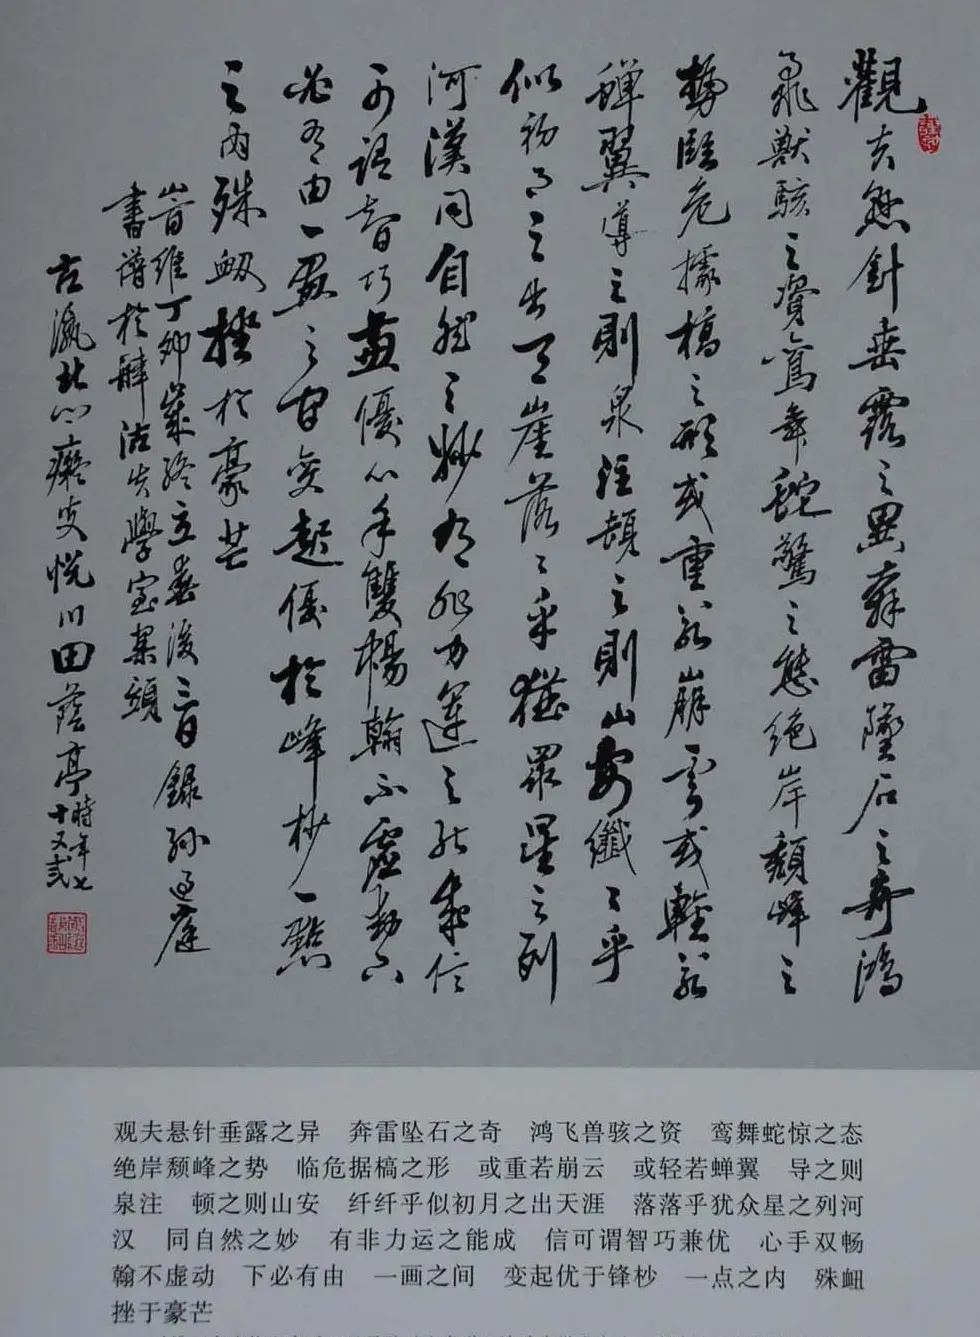 觀夫懸針垂露之異奔雷墜石之奇鴻
飛獸駭之資鸞舞蛇驚之態絕岸頹峰之
勢臨危據槁之形或重若崩雲或輕若
蟬翼導之則泉注頓之則山安纖々乎
似初月之出天崖落々乎猶眾星之列
河漢同自然之妙有非力運之能成信
可謂智巧兼優心手雙暢翰不虛動下
必有由一畫之間變起優於峰杪一點
之內殊衄挫於豪芒
峕維丁卯歲終立春後三日錄孫過庭
書譜於沽失學室案頭
古瀛北癡叟悅川田蔭亭時年七
十又貳
观夫悬针垂露之异　奔雷坠石之奇　鸿飞兽骇之资　鸾舞蛇惊之态
绝岸颓峰之势　临危据槁之形　或重若崩云　或轻若蝉翼　导之则
泉注　顿之则山安　纤纤乎似初月之出天涯　落落乎犹众星之列河
汉　同自然之妙　有非力运之能成　信可谓智巧兼优　心手双畅
翰不虚动　下必有由　一画之间　变起优于锋杪　一点之内　殊衄
挫于豪芒